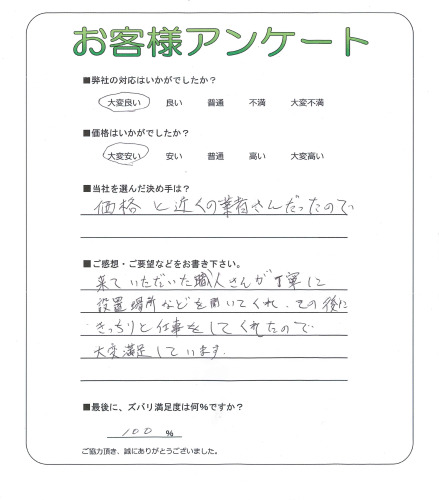 お客様アンケート
■弊社の対応はいかがでしたか？
大変良い 良い 普通 不満 大変不満
■価格はいかがでしたか？
大変安い 安い 普通 高い 大変高い
■当社を選んだ決め手は？
価格と近くの業者さんだったので
■ご感想・ご要望などをお書き下さい。
来ていただいた職人さんが丁寧に
設置場所などを聞いてくれ、その後に
きっちりと仕事をしてくれたので
大変満足しています.
■最後に、ズバリ満足度は何%ですか？
100 %
ご協力頂き、誠にありがとうございました。